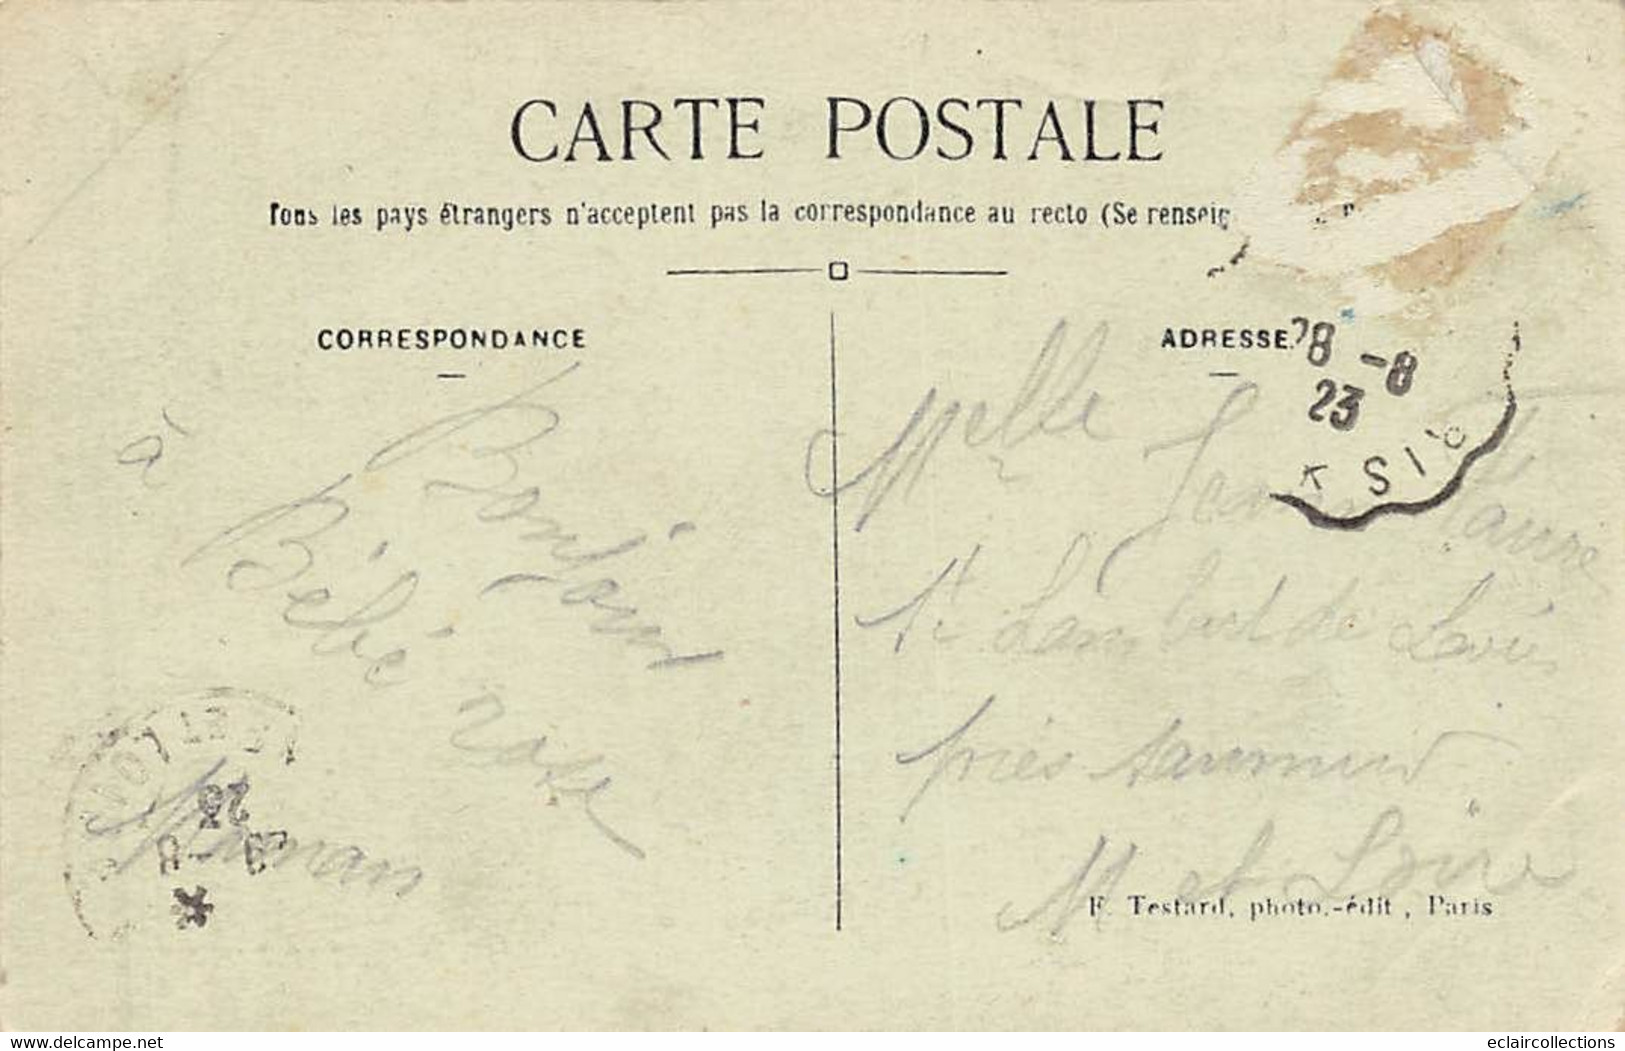 CARTE POSTALE
Tous les pays étrangers n'acceptent pas la correspondance au recto (Se renseig
CORRESPONDANCE
ADRESSE
28 -8
23
Bonjour
à Bébé rose
Maman
Melle
St Lambert de Levées
près Saumur
M et Loire
23
8
*
F. Testard, photo.-édit, Paris
www.delcampe.net
eclaircollections